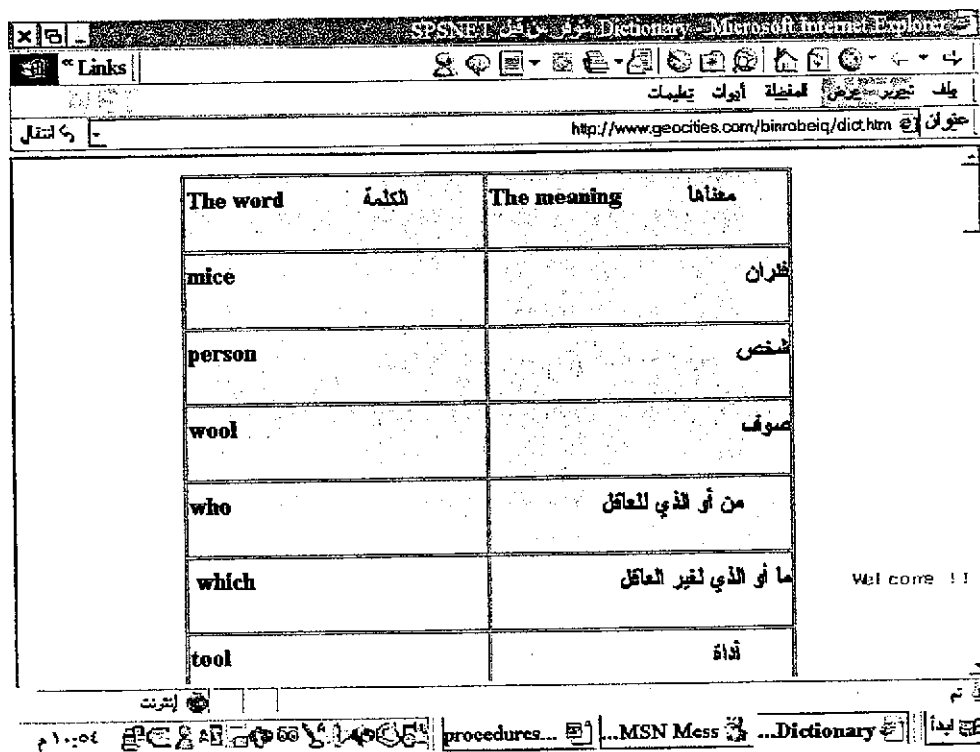 Dictionary - Microsoft Internet Explorer متوفر من قبل SPSNET
Links
ملف تحرير عرض المفضلة أدوات تعليمات
عنوان http://www.geocities.com/binrobeiq/dict.htm انتقال
The word الكلمة The meaning معناها
mice فئران
person شخص
wool صوف
who من أو الذي للعاقل
which ما أو الذي لغير العاقل
Welcome !!
tool أداة
تم
إنترنت
ابدأ Dictionary... MSN Mess... procedures... ١٠:٥٤ م